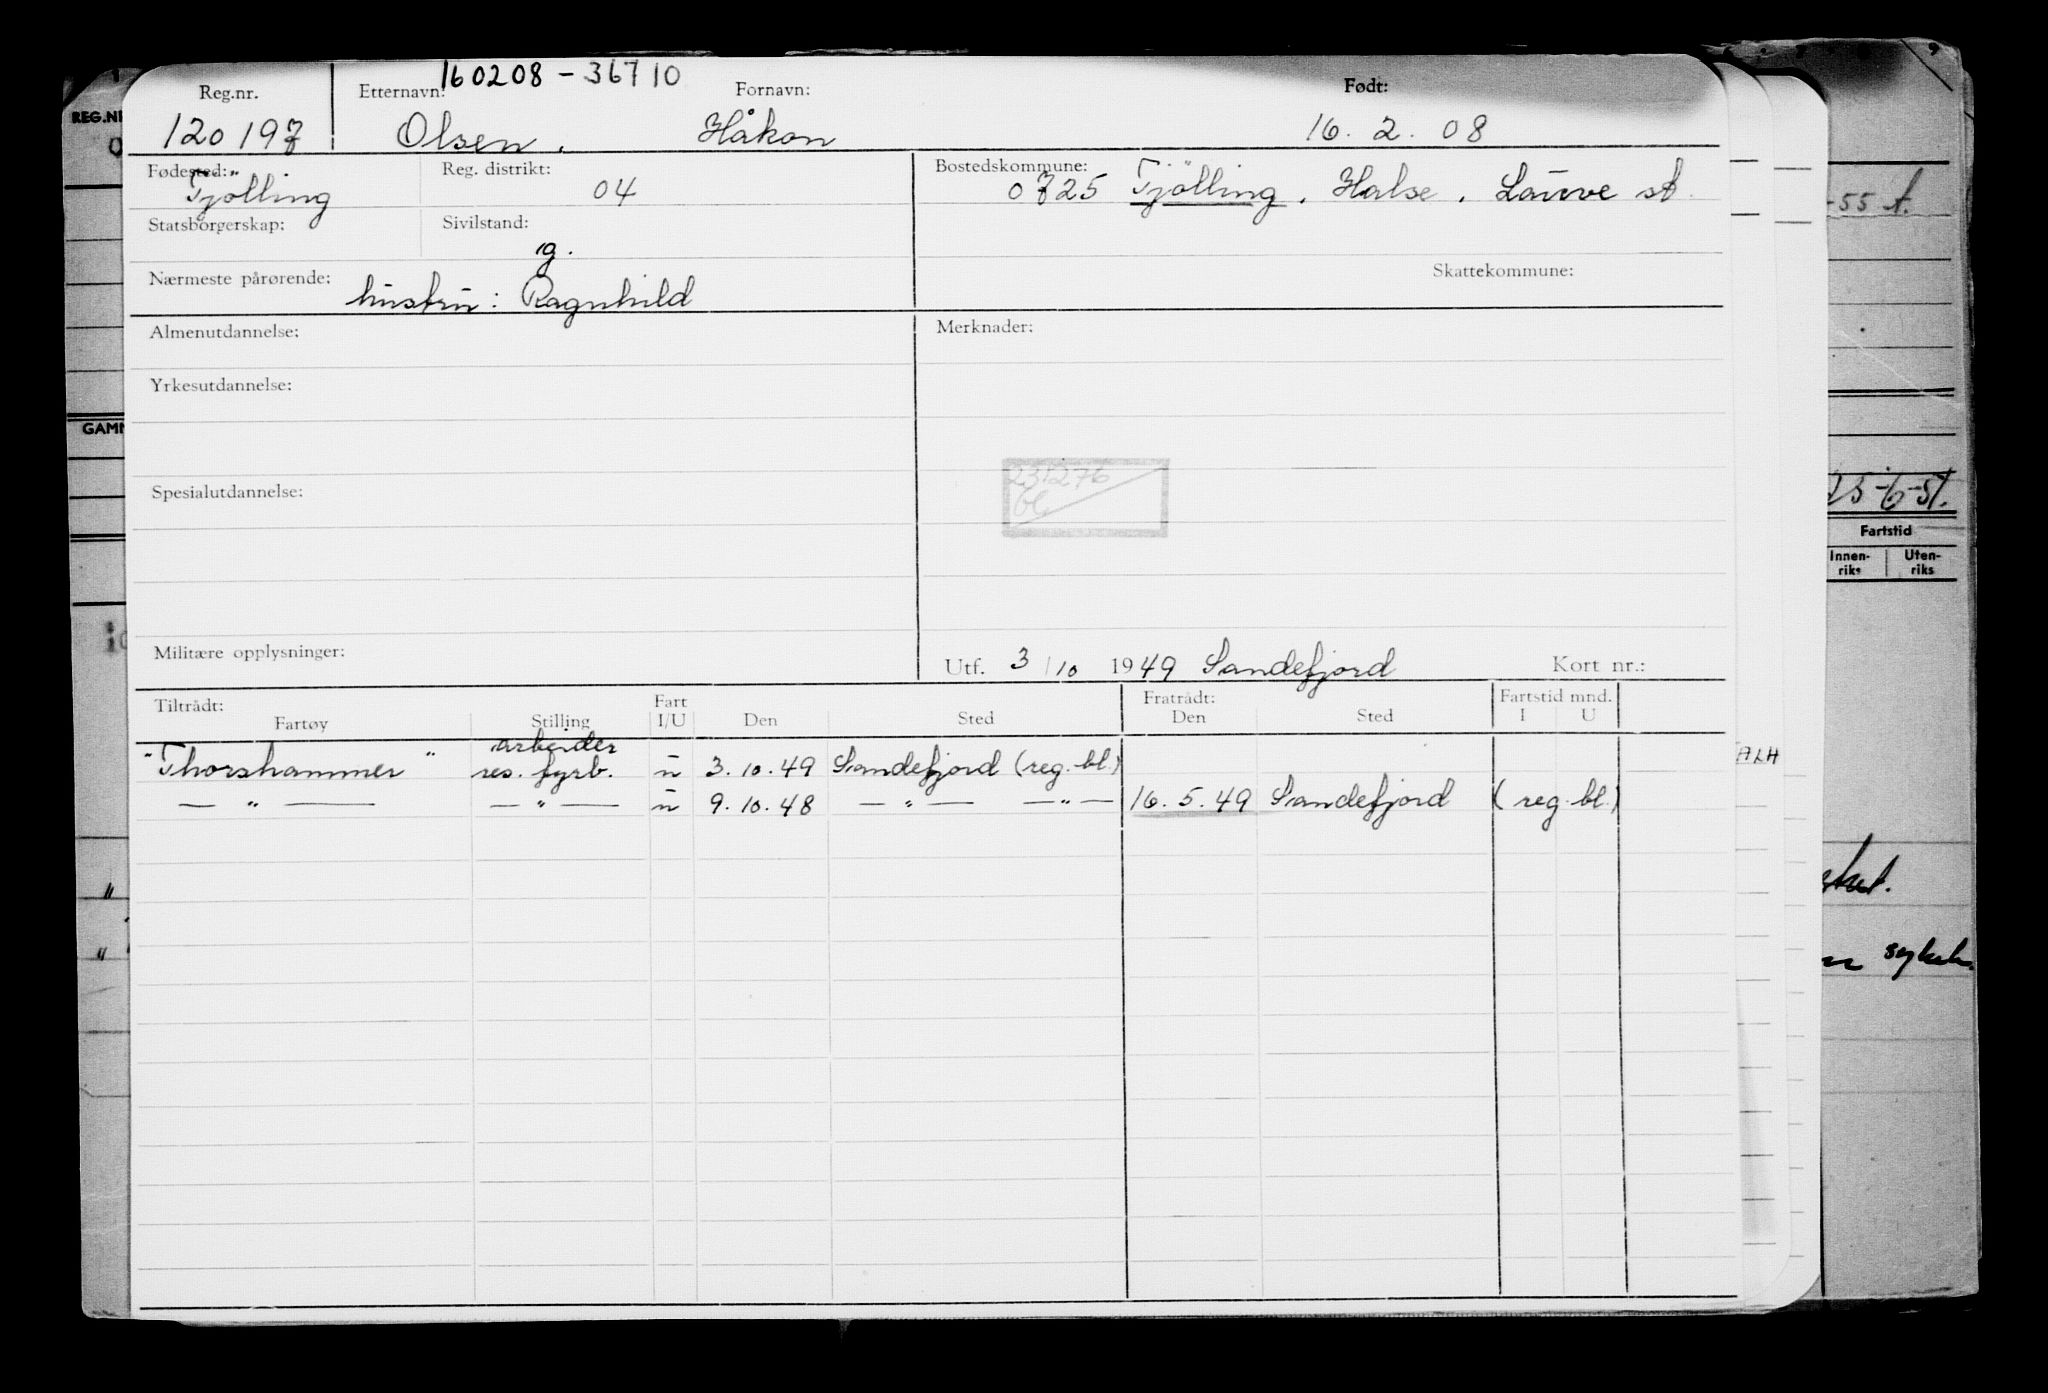 160208 - 36710
Reg.nr. Etternavn: Fornavn: Født:
120197 Olsen, Håkon 16. 2. 08
Fødested: Reg. distrikt: Bostedskommune:
Tjölling 04 0725 Tjölling, Halse, Lauve st.
Statsborgerskap: Sivilstand:
g.
Nærmeste pårørende: Skattekommune:
hustru: Ragnhild
Almenutdannelse: Merknader:
Yrkesutdannelse:
231276
bl
Spesialutdannelse:
Militære opplysninger: Utf. 3/10 1949 Sandefjord Kort nr.:
Tiltrådt: Fart Fratrådt: Fartstid mnd.
Fartøy Stilling I/U Den Sted Den Sted I U
arbeider
"Thorshammer" res. fyrb. u 3. 10. 49 Sandefjord (reg. bl.)
— " — — " — u 9. 10. 48 — " — — " — 16. 5. 49 Sandefjord (reg. bl.)
REG.NR
GAMM
-55 A.
25-6-51.
Fartstid
Innen-
riks
Uten-
riks
ALH
sykeh.